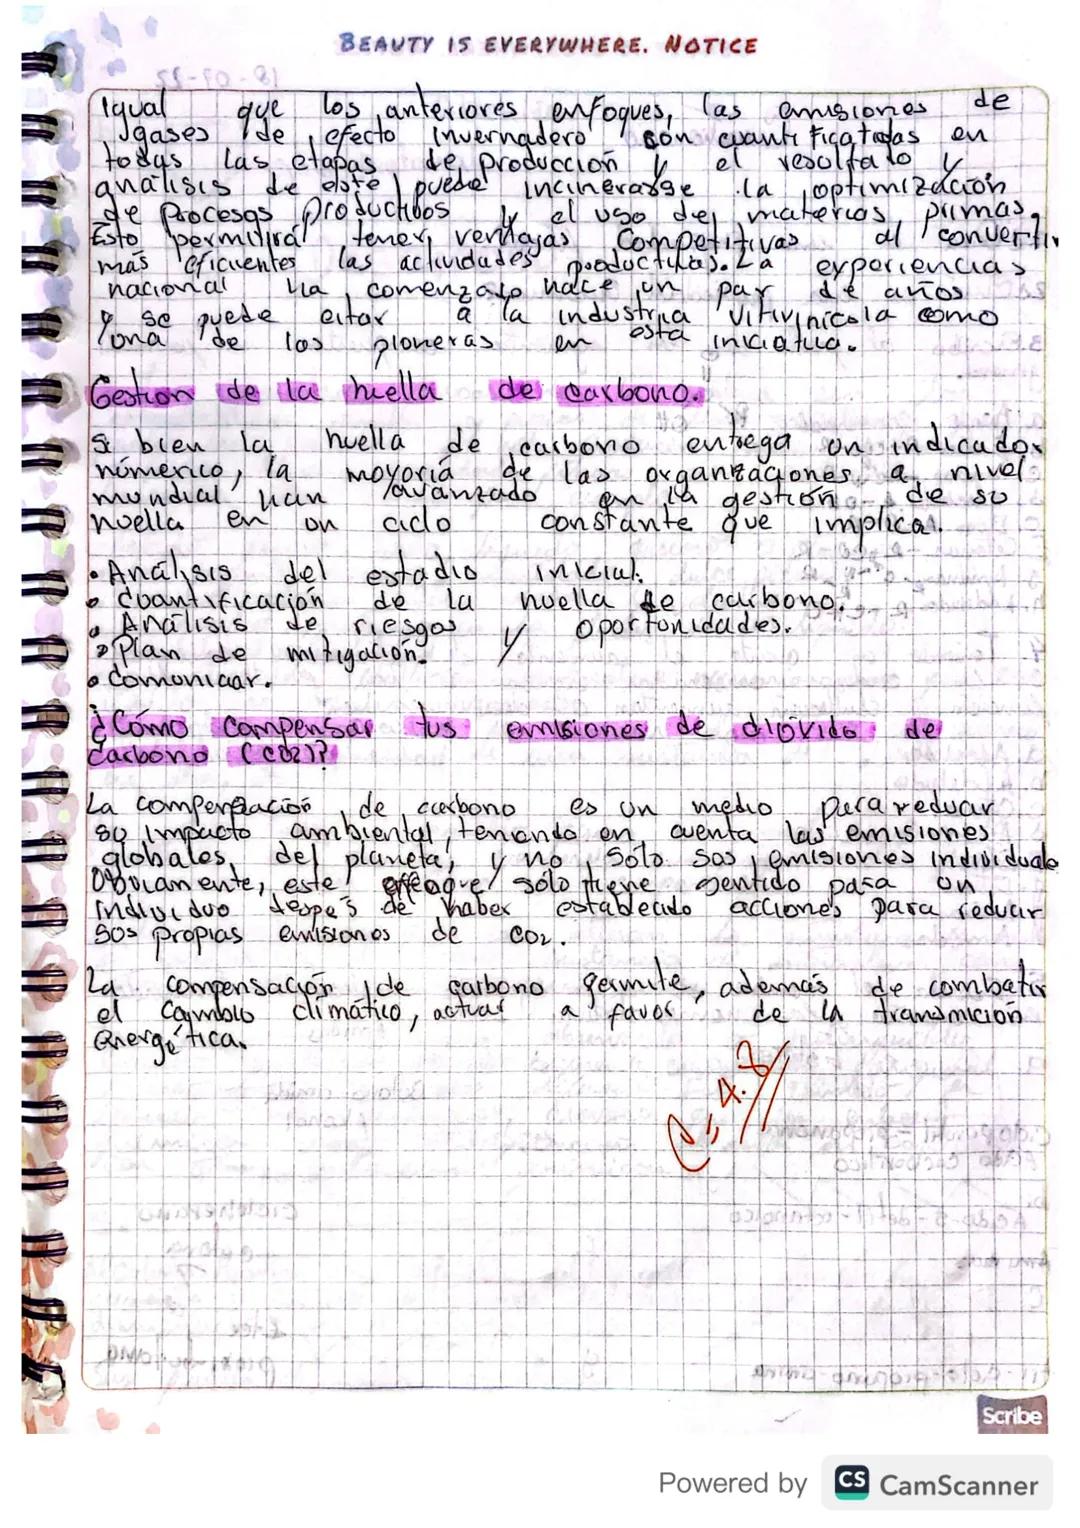 BEAUTY IS EVERYWHERE. NOTICE
Igual que los anteriores enfoques, las emisiones de
gases de efecto invernadero son cuantificatadas en
todas las etapas de producción y el resoltato y
análisis de este puede incinerarse la optimización
de Procesos productivos y el uso de materias primas,
Esto permitirá tener ventajas Competitivas al convertir
más eficientes las actividades productivas. La experiencias
nacional ha comenzado hace un par de años
y se puede citar a la industria vitivinícola como
una de los pioneras en esta iniciativa.
Gestion de la huella de carbono.
Si bien la huella de carbono entrega un indicador
númerico, la moyoría de las organizaciones a nivel
mundial han avanzado en la gestión de su
huella en un ciclo constante que implica.
• Análisis del estadio inicial.
• Cuantificación de la huella de carbono.
• Análisis de riesgos y oportunidades.
• Plan de mitigación.
• Comunicar.
¿Cómo compensar tus emisiones de dióvido de
Carbono (CO2)?
La compensación de carbono es un medio para reducir
su impacto ambiental, teniendo en cuenta las emisiones
globales, del planeta, y no sólo sus emisiones individuale
Obviamente, este enfoque sólo tiene sentido para un
individuo despés de haber establecido acciones para reducir
sus propias emisiones de CO2.
La compensación de carbono permite, además de combatir
el cambio climático, actuar a favor de la transmición
energética.
Scribe
Powered by CS CamScanner